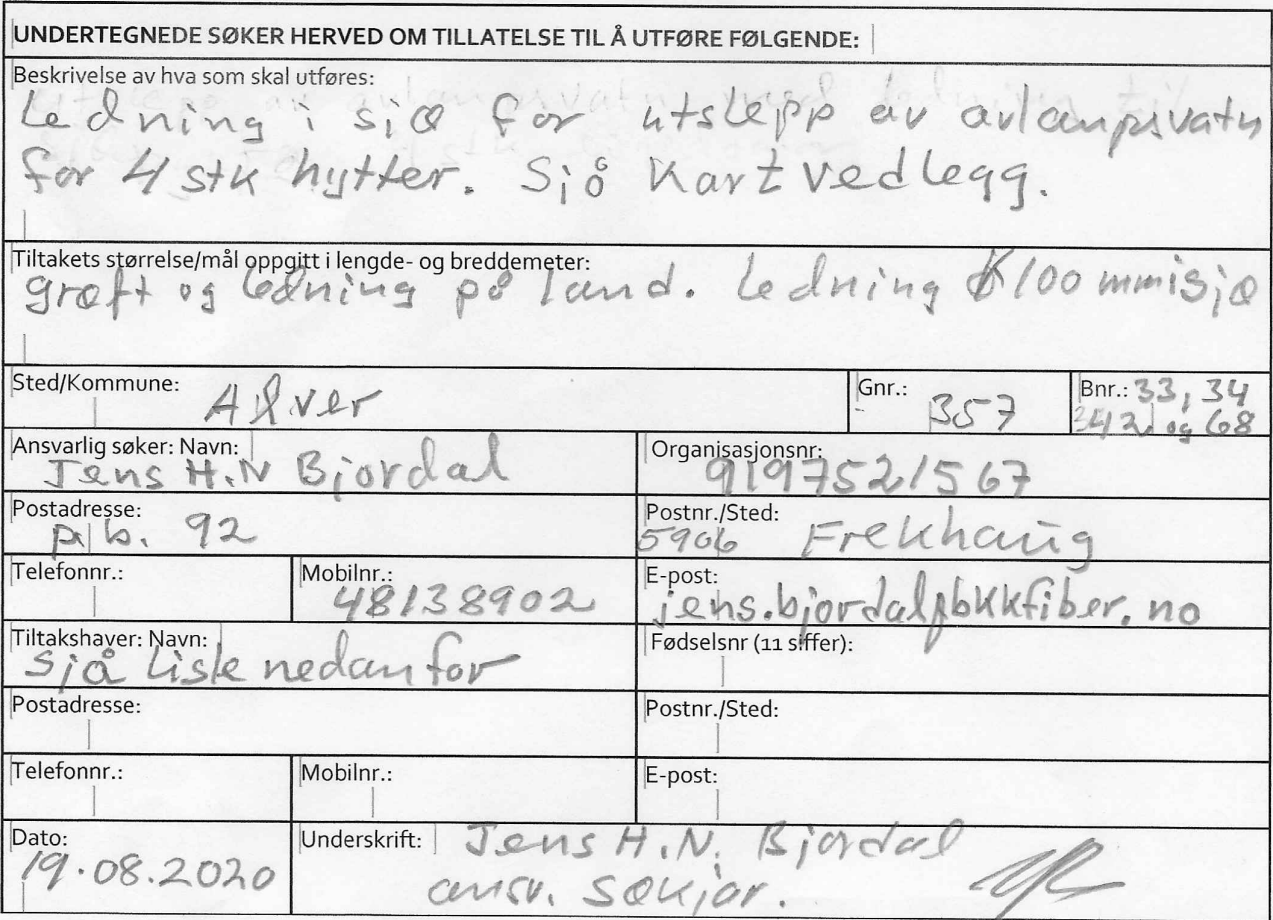 UNDERTEGNEDE SØKER HERVED OM TILLATELSE TIL Å UTFØRE FØLGENDE:
Beskrivelse av hva som skal utføres:
Ledning i sjø for utslepp av avlaupsvatn
for 4 stk hytter. Sjå Kartvedlegg.
Tiltakets størrelse/mål oppgitt i lengde- og breddemeter:
grøft og ledning på land. Ledning Ø100 mm i sjø
Sted/Kommune: Alver Gnr.: 357 Bnr.: 33, 34
42 og 68
Ansvarlig søker: Navn: Jens H.N Bjordal Organisasjonsnr: 9197521567
Postadresse: p.b. 92 Postnr./Sted: 5906 Frekhaug
Telefonnr.: Mobilnr.: 48138902 E-post: jens.bjordal@bkkfiber.no
Tiltakshaver: Navn: Sjå liste nedanfor Fødselsnr (11 siffer):
Postadresse: Postnr./Sted:
Telefonnr.: Mobilnr.: E-post:
Dato: 19.08.2020 Underskrift: Jens H.N. Bjordal
ansv. søkjar.